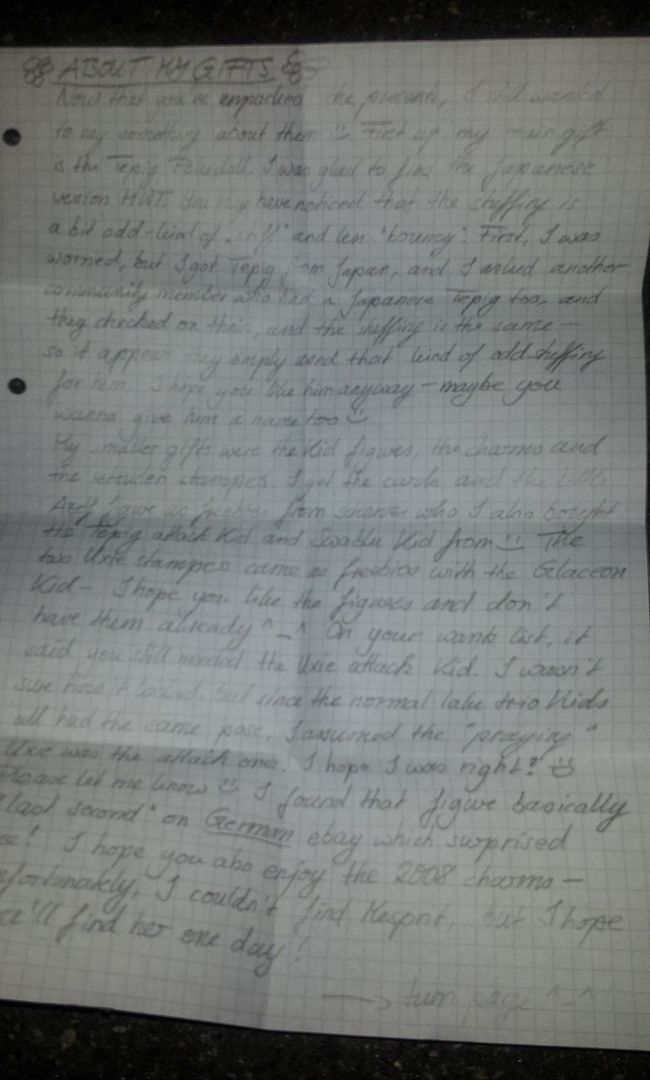 ABOUT MY GIFTS
Now that you've unpacked the presents, I still wanted
to say something about them :) First up, my main gift
is the Tepig Pokedoll. I was glad to find the Japanese
version MWT. You may have noticed that the stuffing is
a bit odd-kind of "stiff" and less "bouncy". First, I was
worried, but I got Tepig from Japan, and I asked another
community member who had a Japanese Tepig too, and
they checked on theirs, and the stuffing is the same –
so it appears they simply used that kind of odd stuffing
for him. I hope you like him anyway – maybe you
wanna give him a name too :)
My smaller gifts were the Kid figures, the charms and
the retsuden stamps. I got the cards and the little
Azelf figure as freebies from who I also bought
the Tepig attack Kid and Swablu Kid from :) The
two Uxie stampers came as freebies with the Glaceon
Kid – I hope you like the figures and don't
have them already ^_^ On your wants list, it
said you still needed the Uxie attack Kid. I wasn't
sure how it looked but since the normal lake trio Kids
all had the same pose, I assumed the "praying"
Uxie was the attack one. I hope I was right! :)
Please let me know :) I found that figure basically
"last second" on German ebay which surprised
me! I hope you also enjoy the 2008 charms –
unfortunately, I couldn't find Mesprit, but I hope
we'll find her one day!
→ turn page ^_^